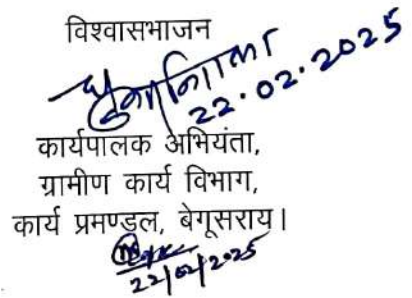 विश्वासभाजन
22.02.2025
कार्यपालक अभियंता,
ग्रामीण कार्य विभाग,
कार्य प्रमण्डल, बेगूसराय।
22/02/2025